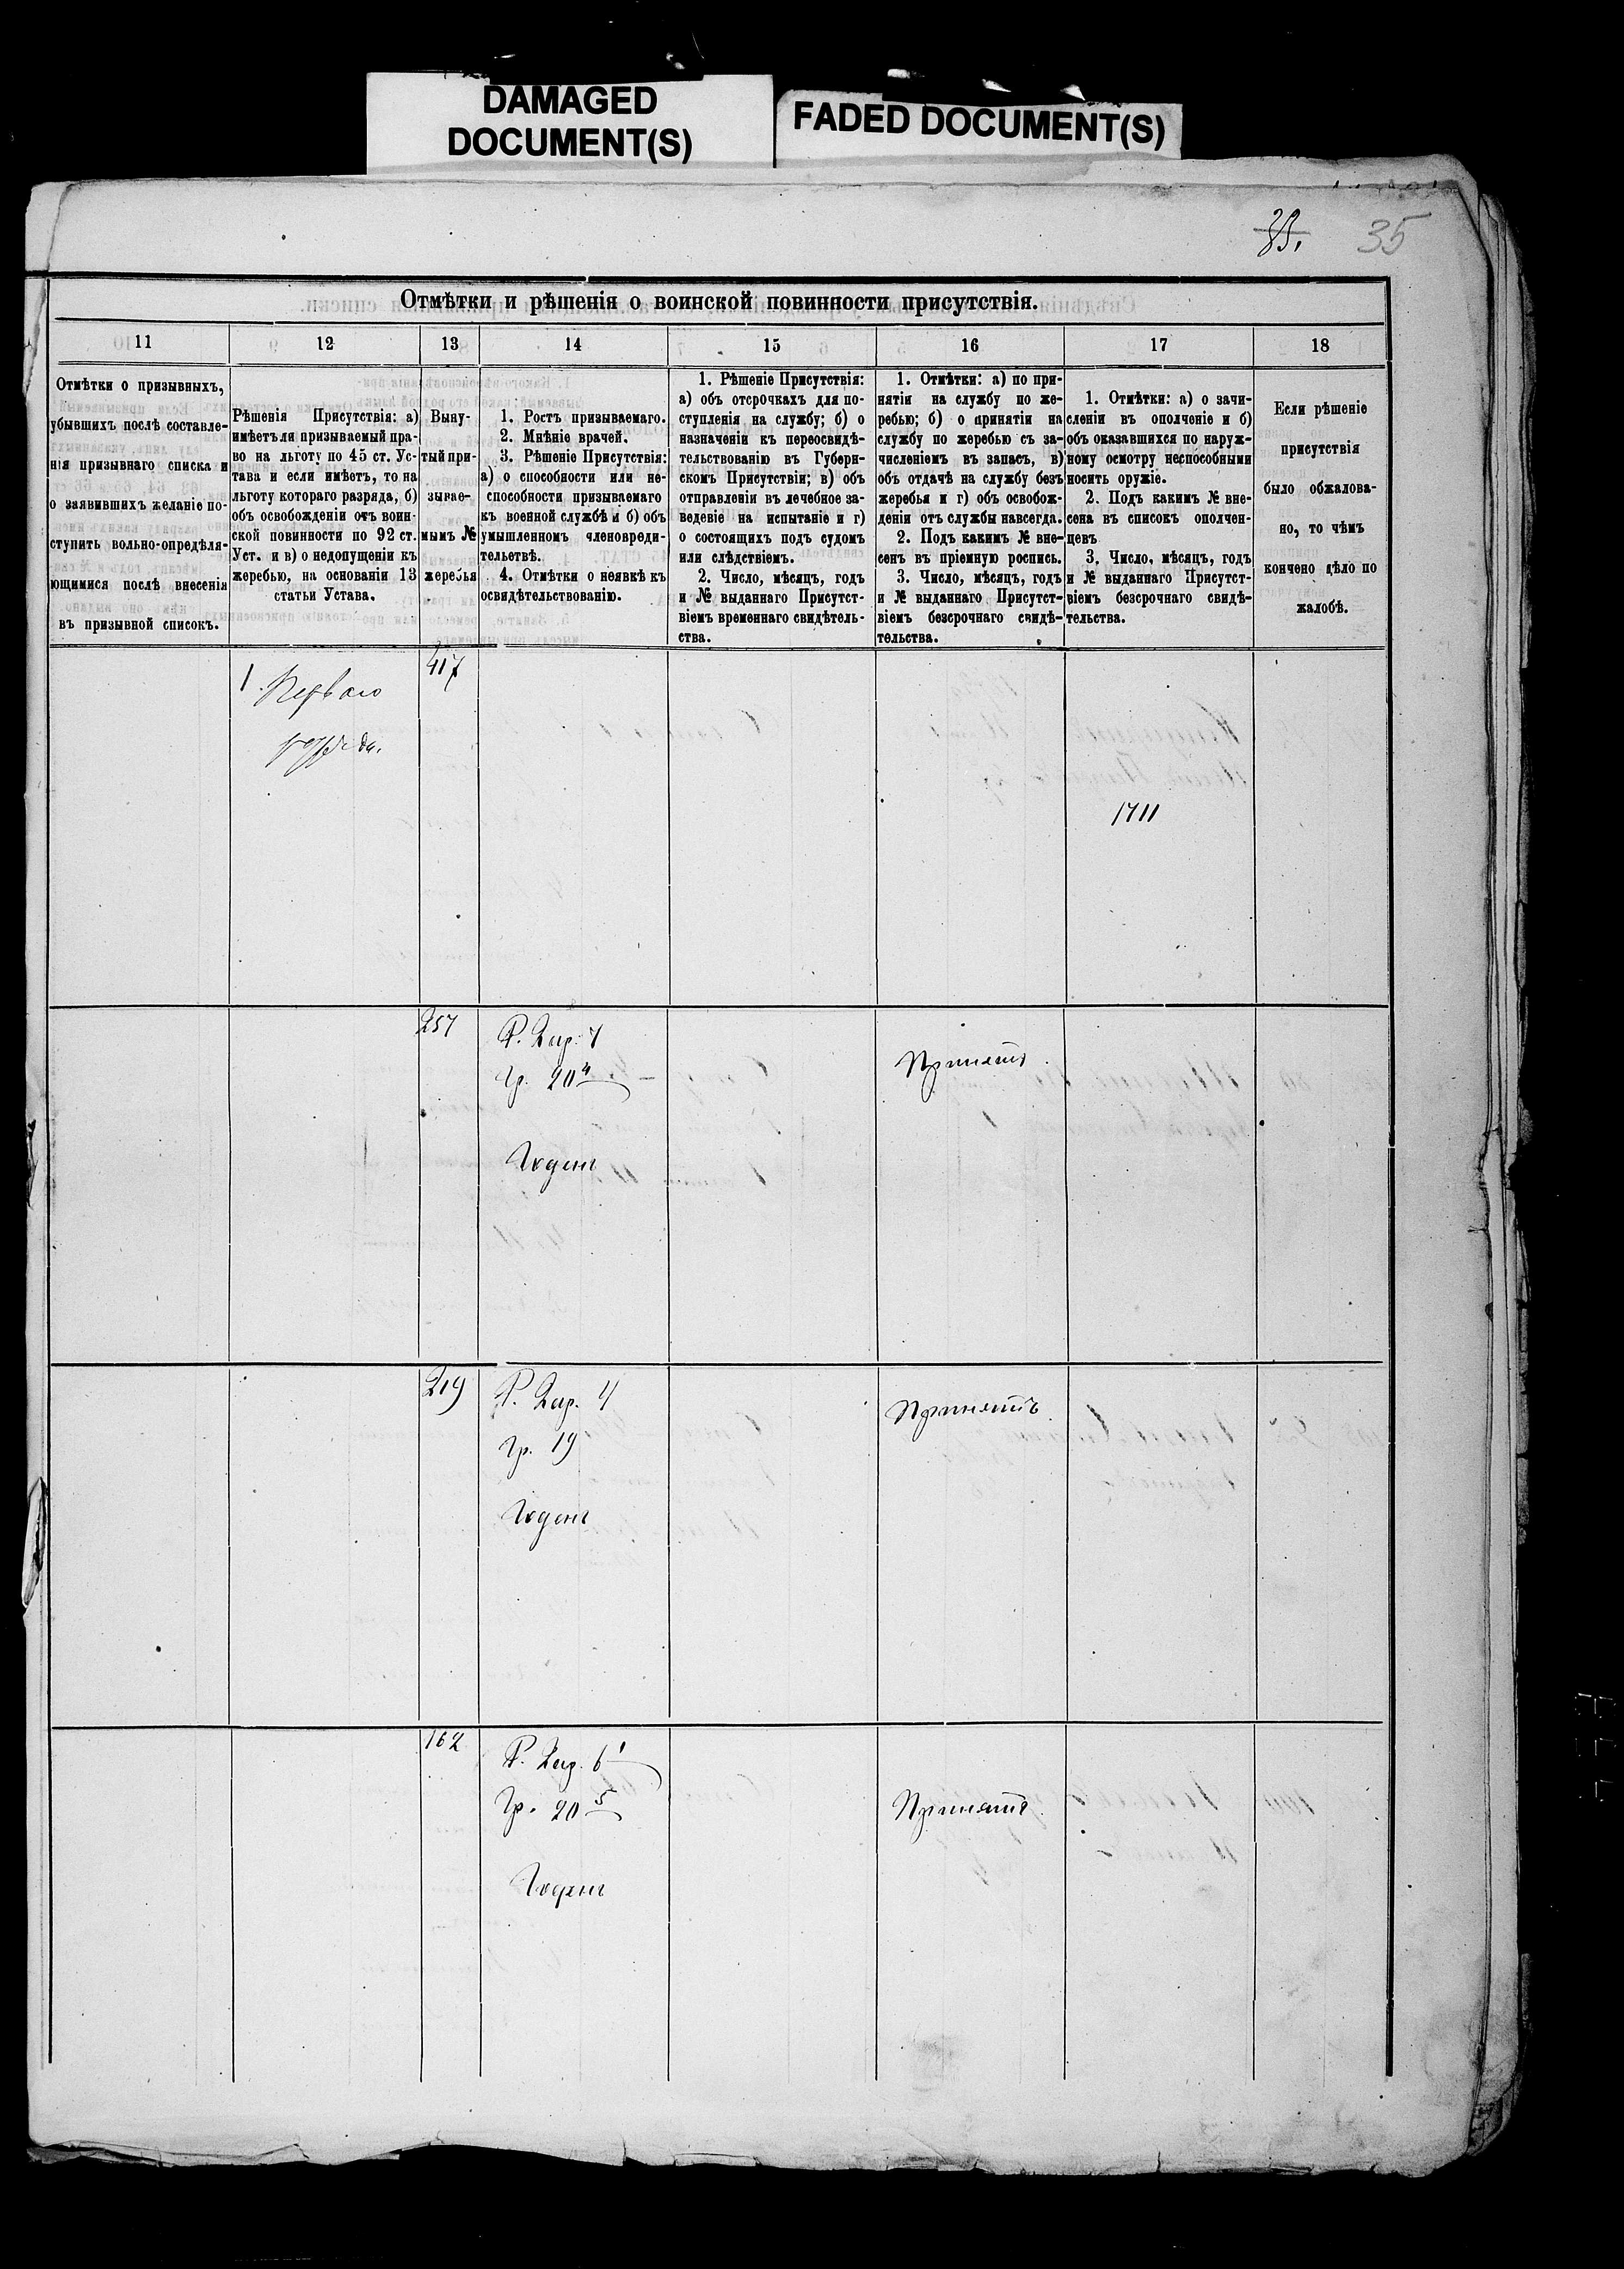 DAMAGED
DOCUMENT(S)
FADED DOCUMENT(S)
35
Отмѣтки и рѣшенія о воинской повинности присутствія.
11
12
13
14
15
16
17
18
Отмѣтки о призывныхъ,
убывшихъ послѣ составле-
нія призывнаго списка и
о заявившихъ желаніе по-
ступить вольно-опредѣля-
ющимися послѣ внесенія
въ призывной списокъ.
Рѣшенія Присутствія: а)
имѣетъ ли призываемый пра-
во на льготу по 45 ст. Ус-
тава и если имѣетъ, то на
льготу котораго разряда, б)
объ освобожденіи отъ воин-
ской повинности по 92 ст.
Уст. и в) о недопущеніи къ
жеребью, на основаніи 13
статьи Устава.
Выну-
тый при-
зывае-
мымъ №
жеребья
1. Ростъ призываемаго.
2. Мнѣніе врачей.
3. Рѣшеніе Присутствія:
а) о способности или не-
способности призываемаго
къ военной службѣ и б) объ
умышленномъ членовреди-
тельетвѣ.
4. Отмѣтки о неявкѣ къ
освидѣтельствованію.
1. Рѣшеніе Присутствія:
а) объ отсрочкахъ для по-
ступленія на службу; б) о
назначеніи къ переосвидѣ-
тельствованію въ Губерн-
скомъ Присутствіи; в) объ
отправленіи въ лечебное за-
ведевіе на испытаніе и г)
о состоящихъ подъ судомъ
или слѣдствіемъ.
2. Число, мѣсяцъ, годъ
и № выданнаго Присутст-
віемъ временнаго свидѣтель-
ства.
1. Отмѣтки: а) по при-
нятіи на службу по же-
ребью; б) о принятіи на
службу по жеребью съ за-
численіемъ въ запасъ, в)
объ отдачѣ на службу безъ
жеребья и г) объ освобож-
деніи отъ службы навсегда.
2. Подъ какимъ № вне-
сенъ въ пріемную роспись.
3. Число, мѣсяцъ, годъ
и № выданнаго Присутст-
віемъ безсрочнаго свидѣ-
тельства.
1. Отмѣтки: а) о зачи-
сленіи въ ополченіе и б)
объ оказавшихся по наруж-
ному осмотру неспособными
носить оружіе.
2. Подъ какимъ № вне-
сена въ списокъ ополчен-
цевъ
3. Число, мѣсяцъ, годъ
и № выданнаго Присутст-
віемъ безсрочнаго свидѣ-
тельства.
Если рѣшеніе
присутствія
было обжалова-
но, то чѣмъ
кончено дѣло по
жалобѣ.
1. Перваго
разряда.
417
1711
257
Р. 2 ар. 4
Гр. 20 4
Годенъ
Принятъ
219
Р. 2 ар. 4
Гр. 19
Годенъ
Принятъ
162
Р. 2 ар. 6 1
Гр. 20 5
Годенъ
Принятъ